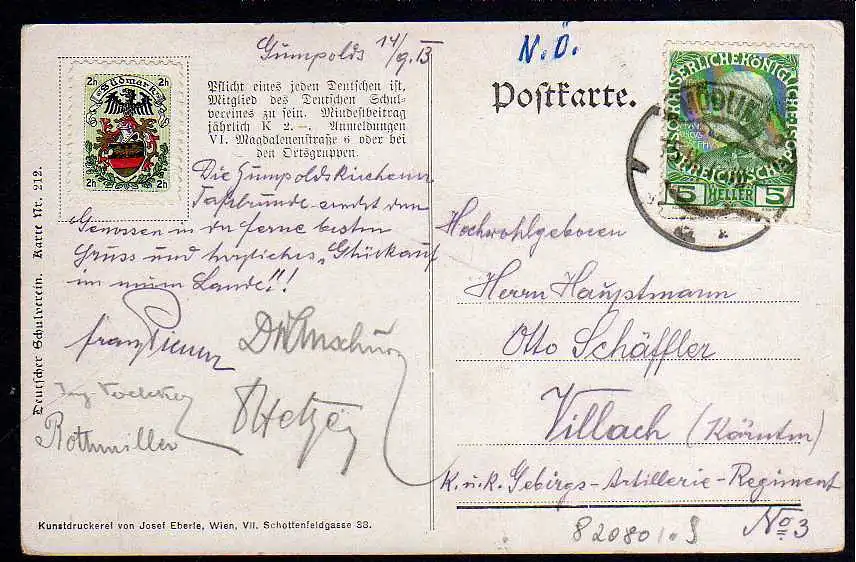 Gumpolds 14/9.13
N.Ö.
2h Südmark 2h
2h 2h
Pflicht eines jeden Deutschen ist,
Mitglied des Deutschen Schul-
vereines zu sein. Mindestbeitrag
jährlich K 2.–. Anmeldungen
VI. Magdalenenstraße 6 oder bei
den Ortsgruppen.
Postkarte.
5 HELLER 5
Die Gumpoldskirchener
Tafelrunde sendet den
Genossen in der ferne besten
Gruss und herzliches „Glückauf
im neuen Lande"!!
Franz
Rothmiller
Hochwohlgeboren
Herrn Hauptmann
Otto Schäffler
Villach (Kärnten)
K.u.K. Gebirgs-Artillerie-Regiment
No 3
820801.9
Deutscher Schulverein. Karte Nr. 212.
Kunstdruckerei von Josef Eberle, Wien, VII. Schottenfeldgasse 38.